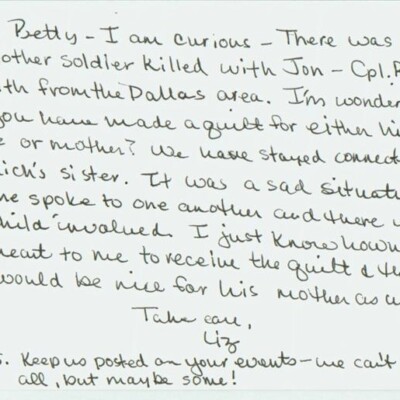 Betty - I am curious - There was
other soldier killed with Jon - Cpl. R
th from the Dallas area. I'm wonder
you have made a quilt for either hi
e or mother? We have stayed connect
ich's sister. It was a sad situat
ne spoke to one another and there w
child involved. I just know how
eant to me to receive the quilt & th
would be nice for his mother as w
Take care,
Liz
s. Keep us posted on your events - we can't
all, but maybe some!